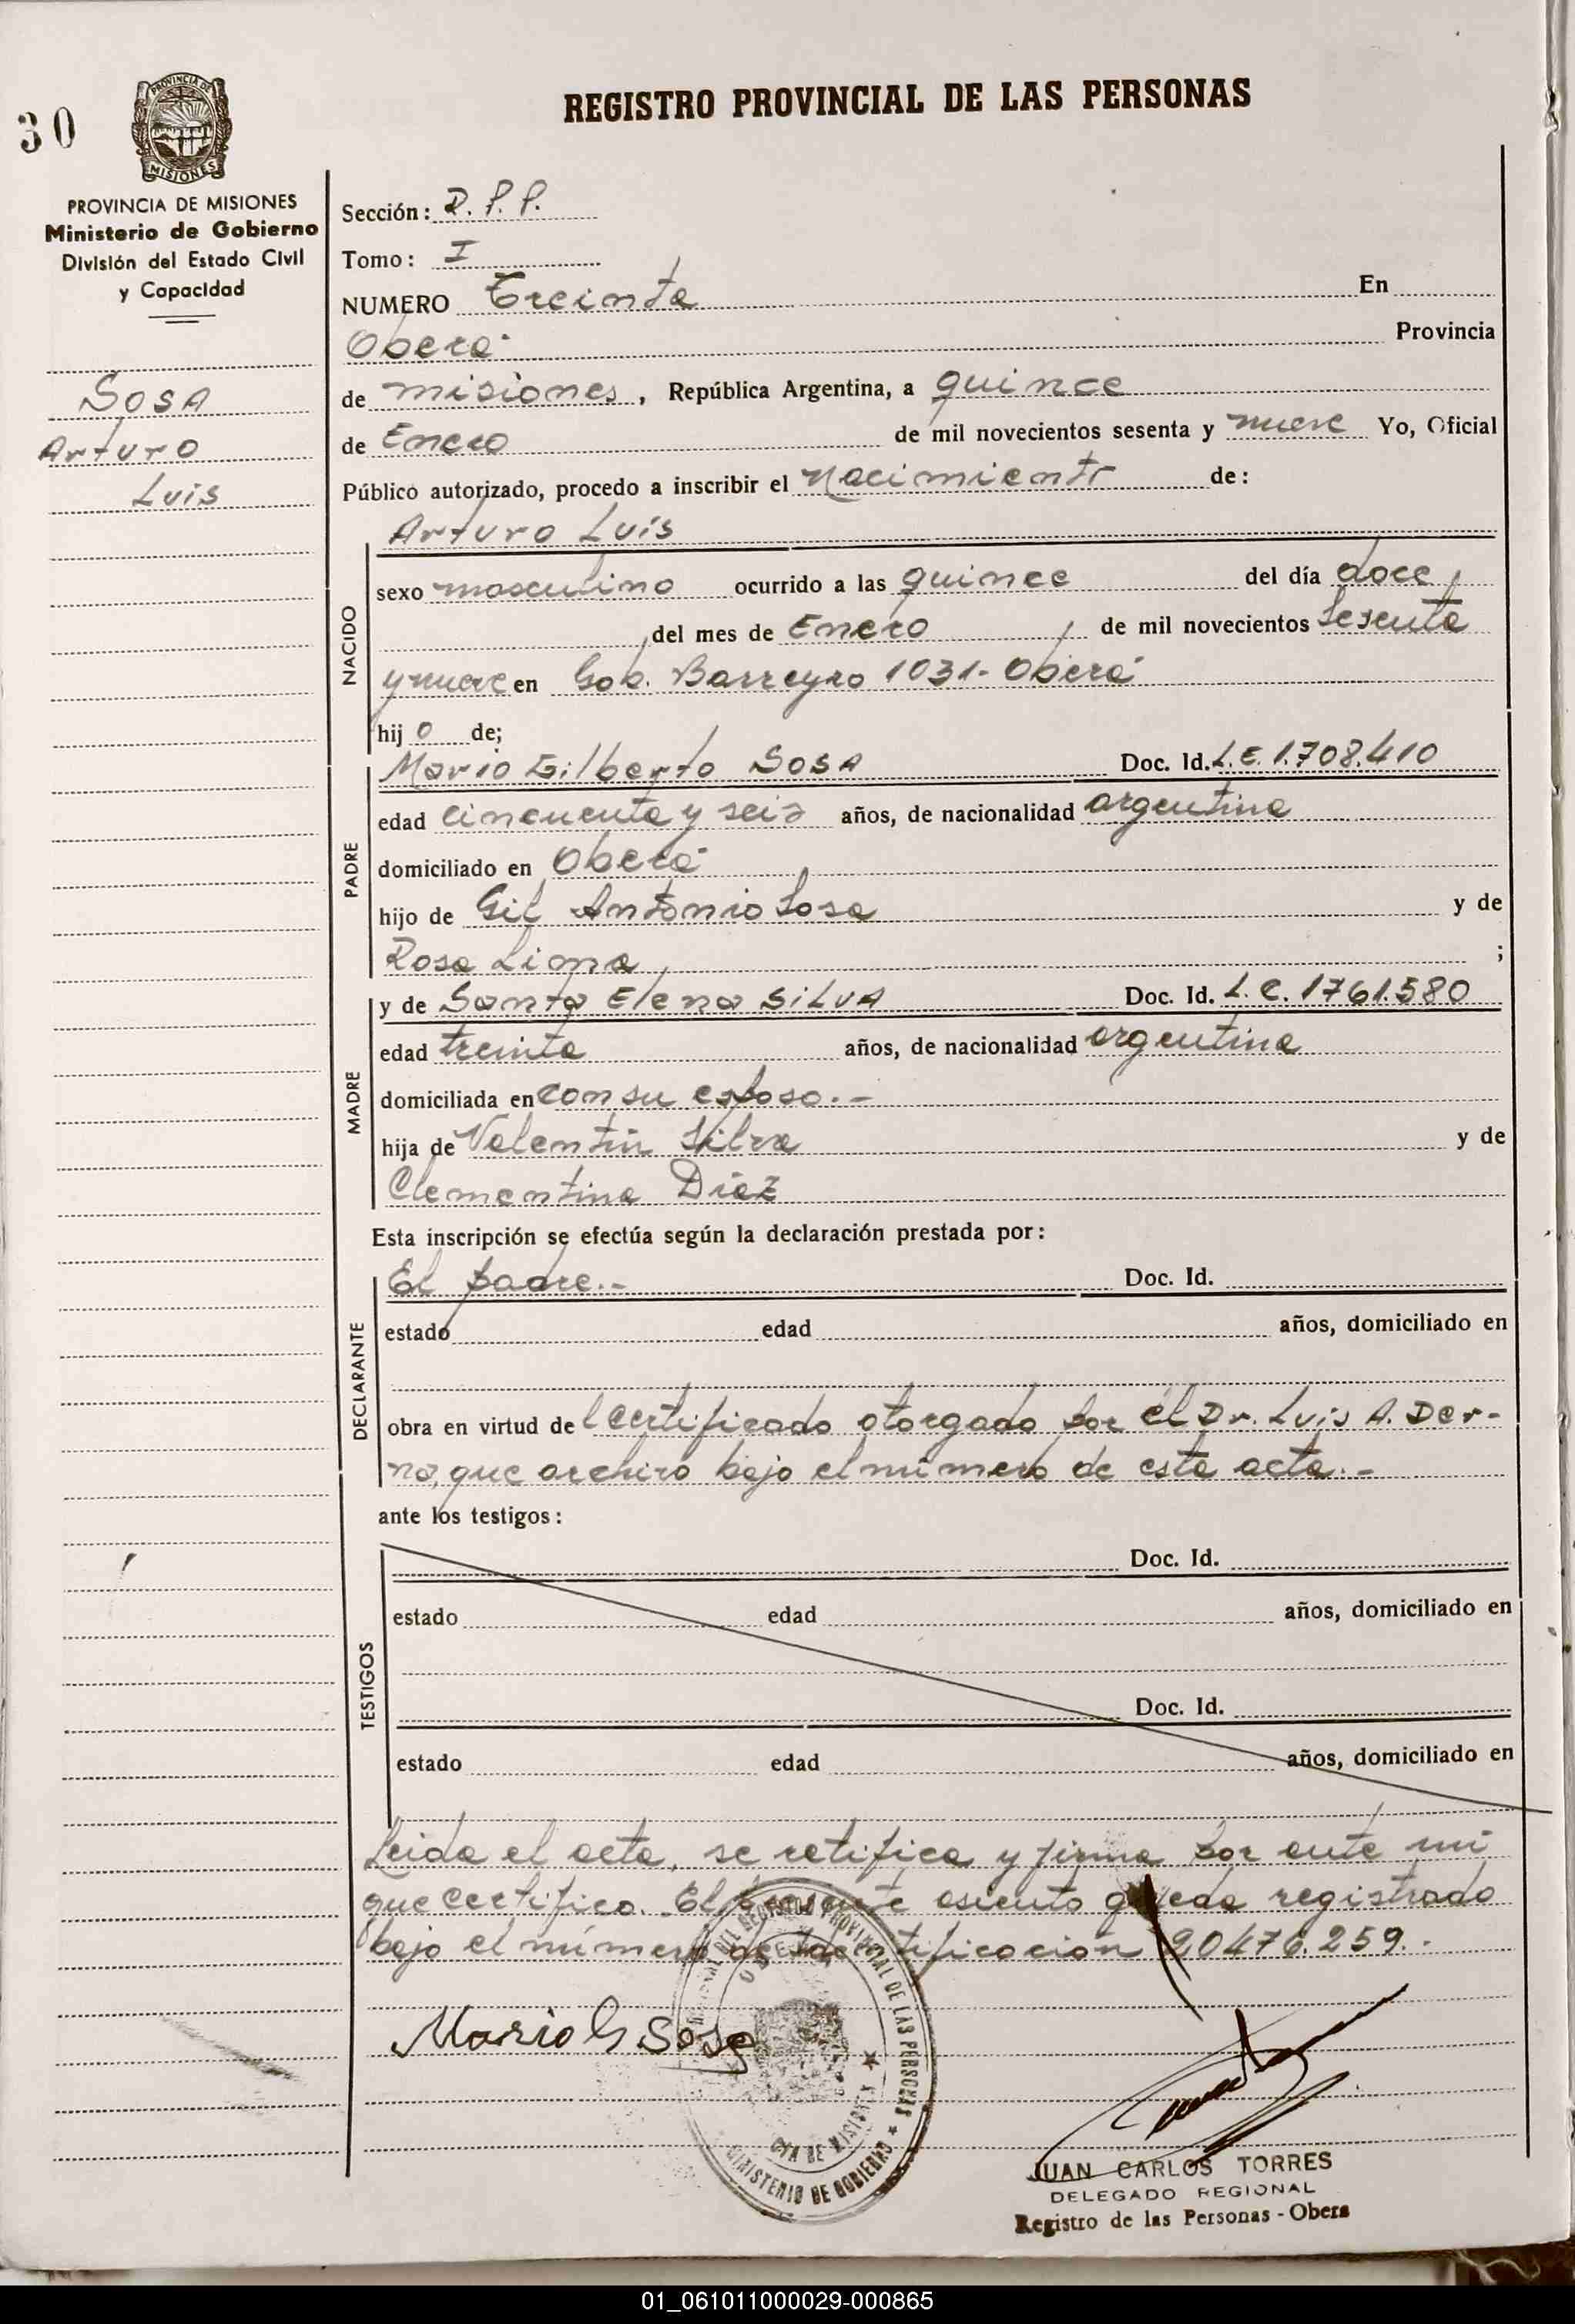 REGISTRO PROVINCIAL DE LAS PERSONAS
30
PROVINCIA DE
MISIONES
PROVINCIA DE MISIONES
Ministerio de Gobierno
División del Estado Civil
y Capacidad
SOSA
Arturo
Luis
Sección: R. P. P.
Tomo: I
NUMERO Treinta En
Oberá Provincia
de misiones, República Argentina, a quince
de Enero de mil novecientos sesenta y nueve Yo, Oficial
Público autorizado, procedo a inscribir el Nacimiento de:
Arturo Luis
NACIDO
sexo masculino ocurrido a las quince del día doce
del mes de Enero de mil novecientos sesenta
y nueve en Gob. Barreyro 1031- Oberá
hijo de;
PADRE
Mario Gilberto SOSA Doc. Id. L.E. 1.708.410
edad cincuenta y seis años, de nacionalidad argentina
domiciliado en Oberá
hijo de Gil Antonio Sosa y de
Rosa ;
MADRE
y de Santa Elena SILVA Doc. Id. L.C. 1761.580
edad treinta años, de nacionalidad argentina
domiciliada en con su esposo.-
hija de Valentín Silva y de
Clementina Díaz
Esta inscripción se efectúa según la declaración prestada por:
DECLARANTE
El padre.- Doc. Id.
estado edad años, domiciliado en
obra en virtud del certificado otorgado por el Dr. Luis A. Der-
na, que archivo bajo el número de esta acta.-
ante los testigos:
TESTIGOS
Doc. Id.
estado edad años, domiciliado en
Doc. Id.
estado edad años, domiciliado en
Leida el acta, se ratifica y firma por ante mi
que certifico. El presente asiento queda registrado
bajo el número de identificación 20476.259.-
Mario G Sosa
DEL REGISTRO PROVINCIAL DE LAS PERSONAS
OBERA
CIA DE MISIONES
MINISTERIO DE GOBIERNO
JUAN CARLOS TORRES
DELEGADO REGIONAL
Registro de las Personas - Obera
01_061011000029-000865